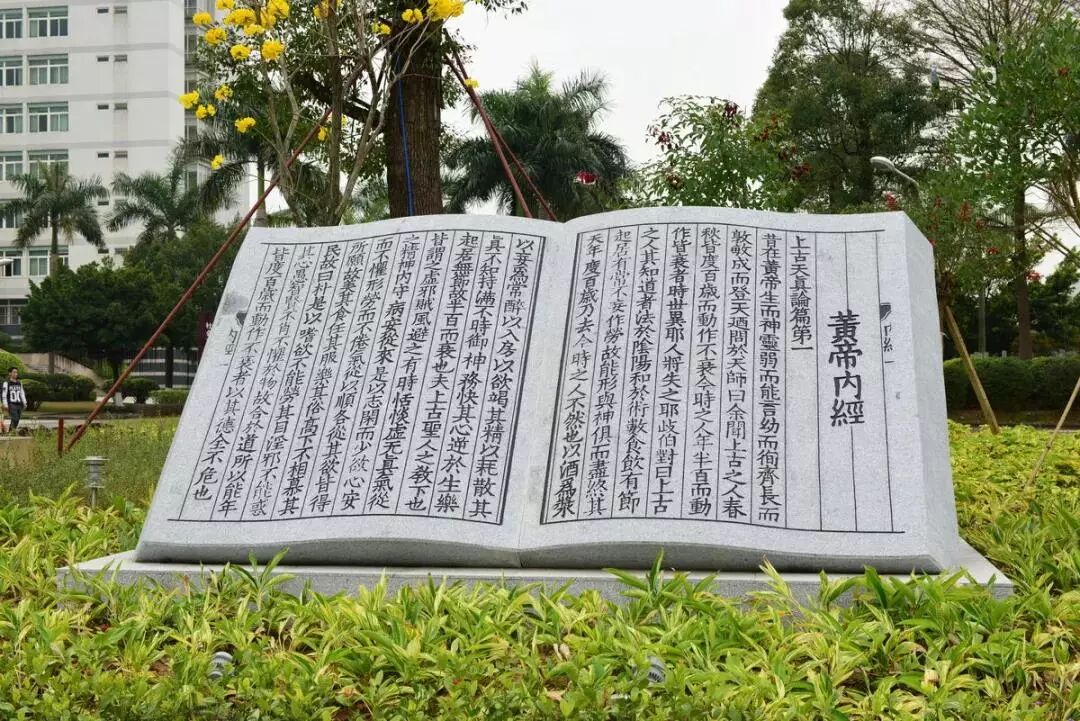 黃帝內經
上古天真論篇第一
昔在黃帝生而神靈弱而能言幼而徇齊長而
敦敏成而登天迺問於天師曰余聞上古之人春
秋皆度百歲而動作不衰今時之人年半百而動
作皆衰者時世異耶人將失之耶歧伯對曰上古
之人其知道者法於陰陽和於術數食飲有節
起居有常不妄作勞故能形與神俱而盡終其
天年度百歲乃去今時之人不然也以酒為漿
以妄為常醉以入房以欲竭其精以耗散其
真不知持滿不時御神務快其心逆於生樂
起居無節故半百而衰也夫上古聖人之教下也
皆謂之虛邪賊風避之有時恬惔虛无真氣從
之精神內守病安從來是以志閑而少欲心安
而不懼形勞而不倦氣從以順各從其欲皆得
所願故美其食任其服樂其俗高下不相慕其
民故曰朴是以嗜欲不能勞其目淫邪不能惑
其心愚智賢不肖不懼於物故合於道所以能年
皆度百歲而動作不衰者以其德全不危也